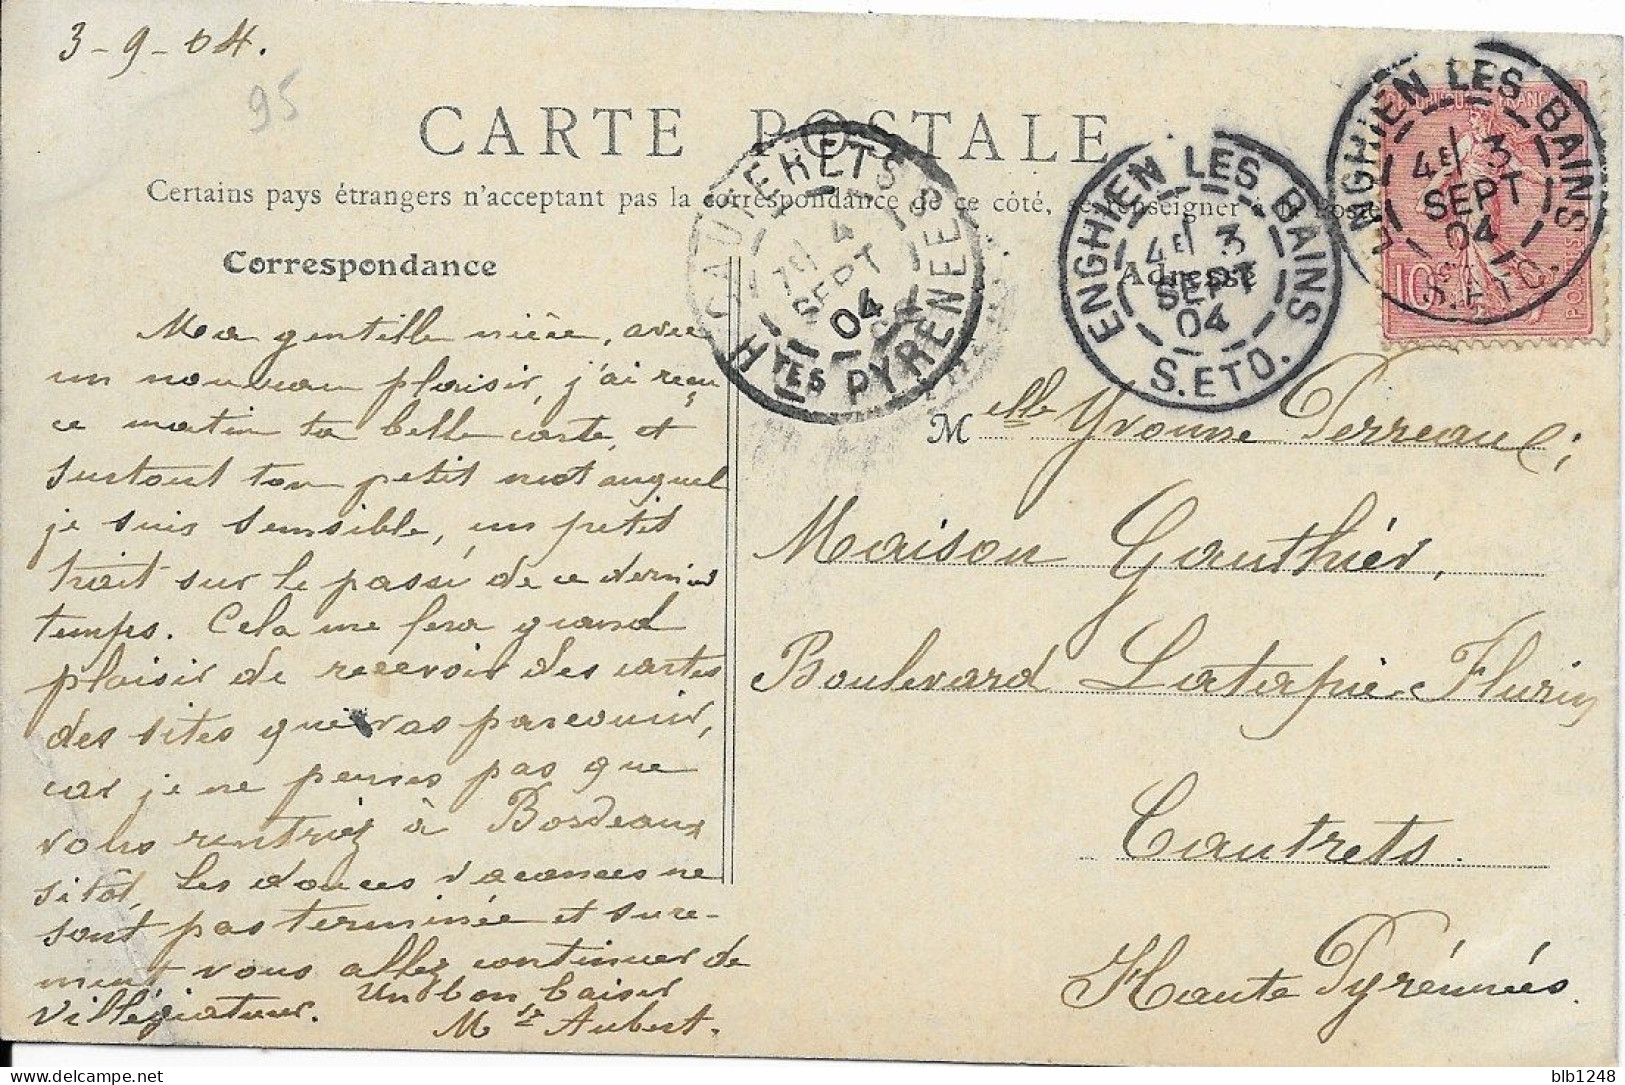 3-9-04.
95
CARTE POSTALE
Certains pays étrangers n'acceptant pas la correspondance de ce côté, se renseigner à la Poste
Correspondance
Adresse
Ma gentille nièce, avec
un nouveau plaisir, j'ai reçu
ce matin ta belle carte, et
surtout ton petit mot auquel
je suis sensible, un petit
trait sur le passé de ce dernier
temps. Cela me fera grand
plaisir de recevoir des cartes
des sites que vas parcourir,
car je ne penses pas que
vous rentriez à Bordeaux
sitôt, les douces vacances ne
sont pas terminée et sure-
ment vous allez continuer de
villégiatuer. Un bon baiser
Aubert.
Melle Yvonne Perreau
Maison Gauthier,
Boulevard Latapie-Flurin
Cautrets.
Haute Pyrénnées.
CAUTERETS
7E 4
SEPT
04
HTES PYRENEES
ENGHIEN LES BAINS
4E 3
SEPT
04
S. ET O.
ENGHIEN LES BAINS
4E 3
SEPT
04
S. ET O.
10
POSTES
delcampe.net
blb1248